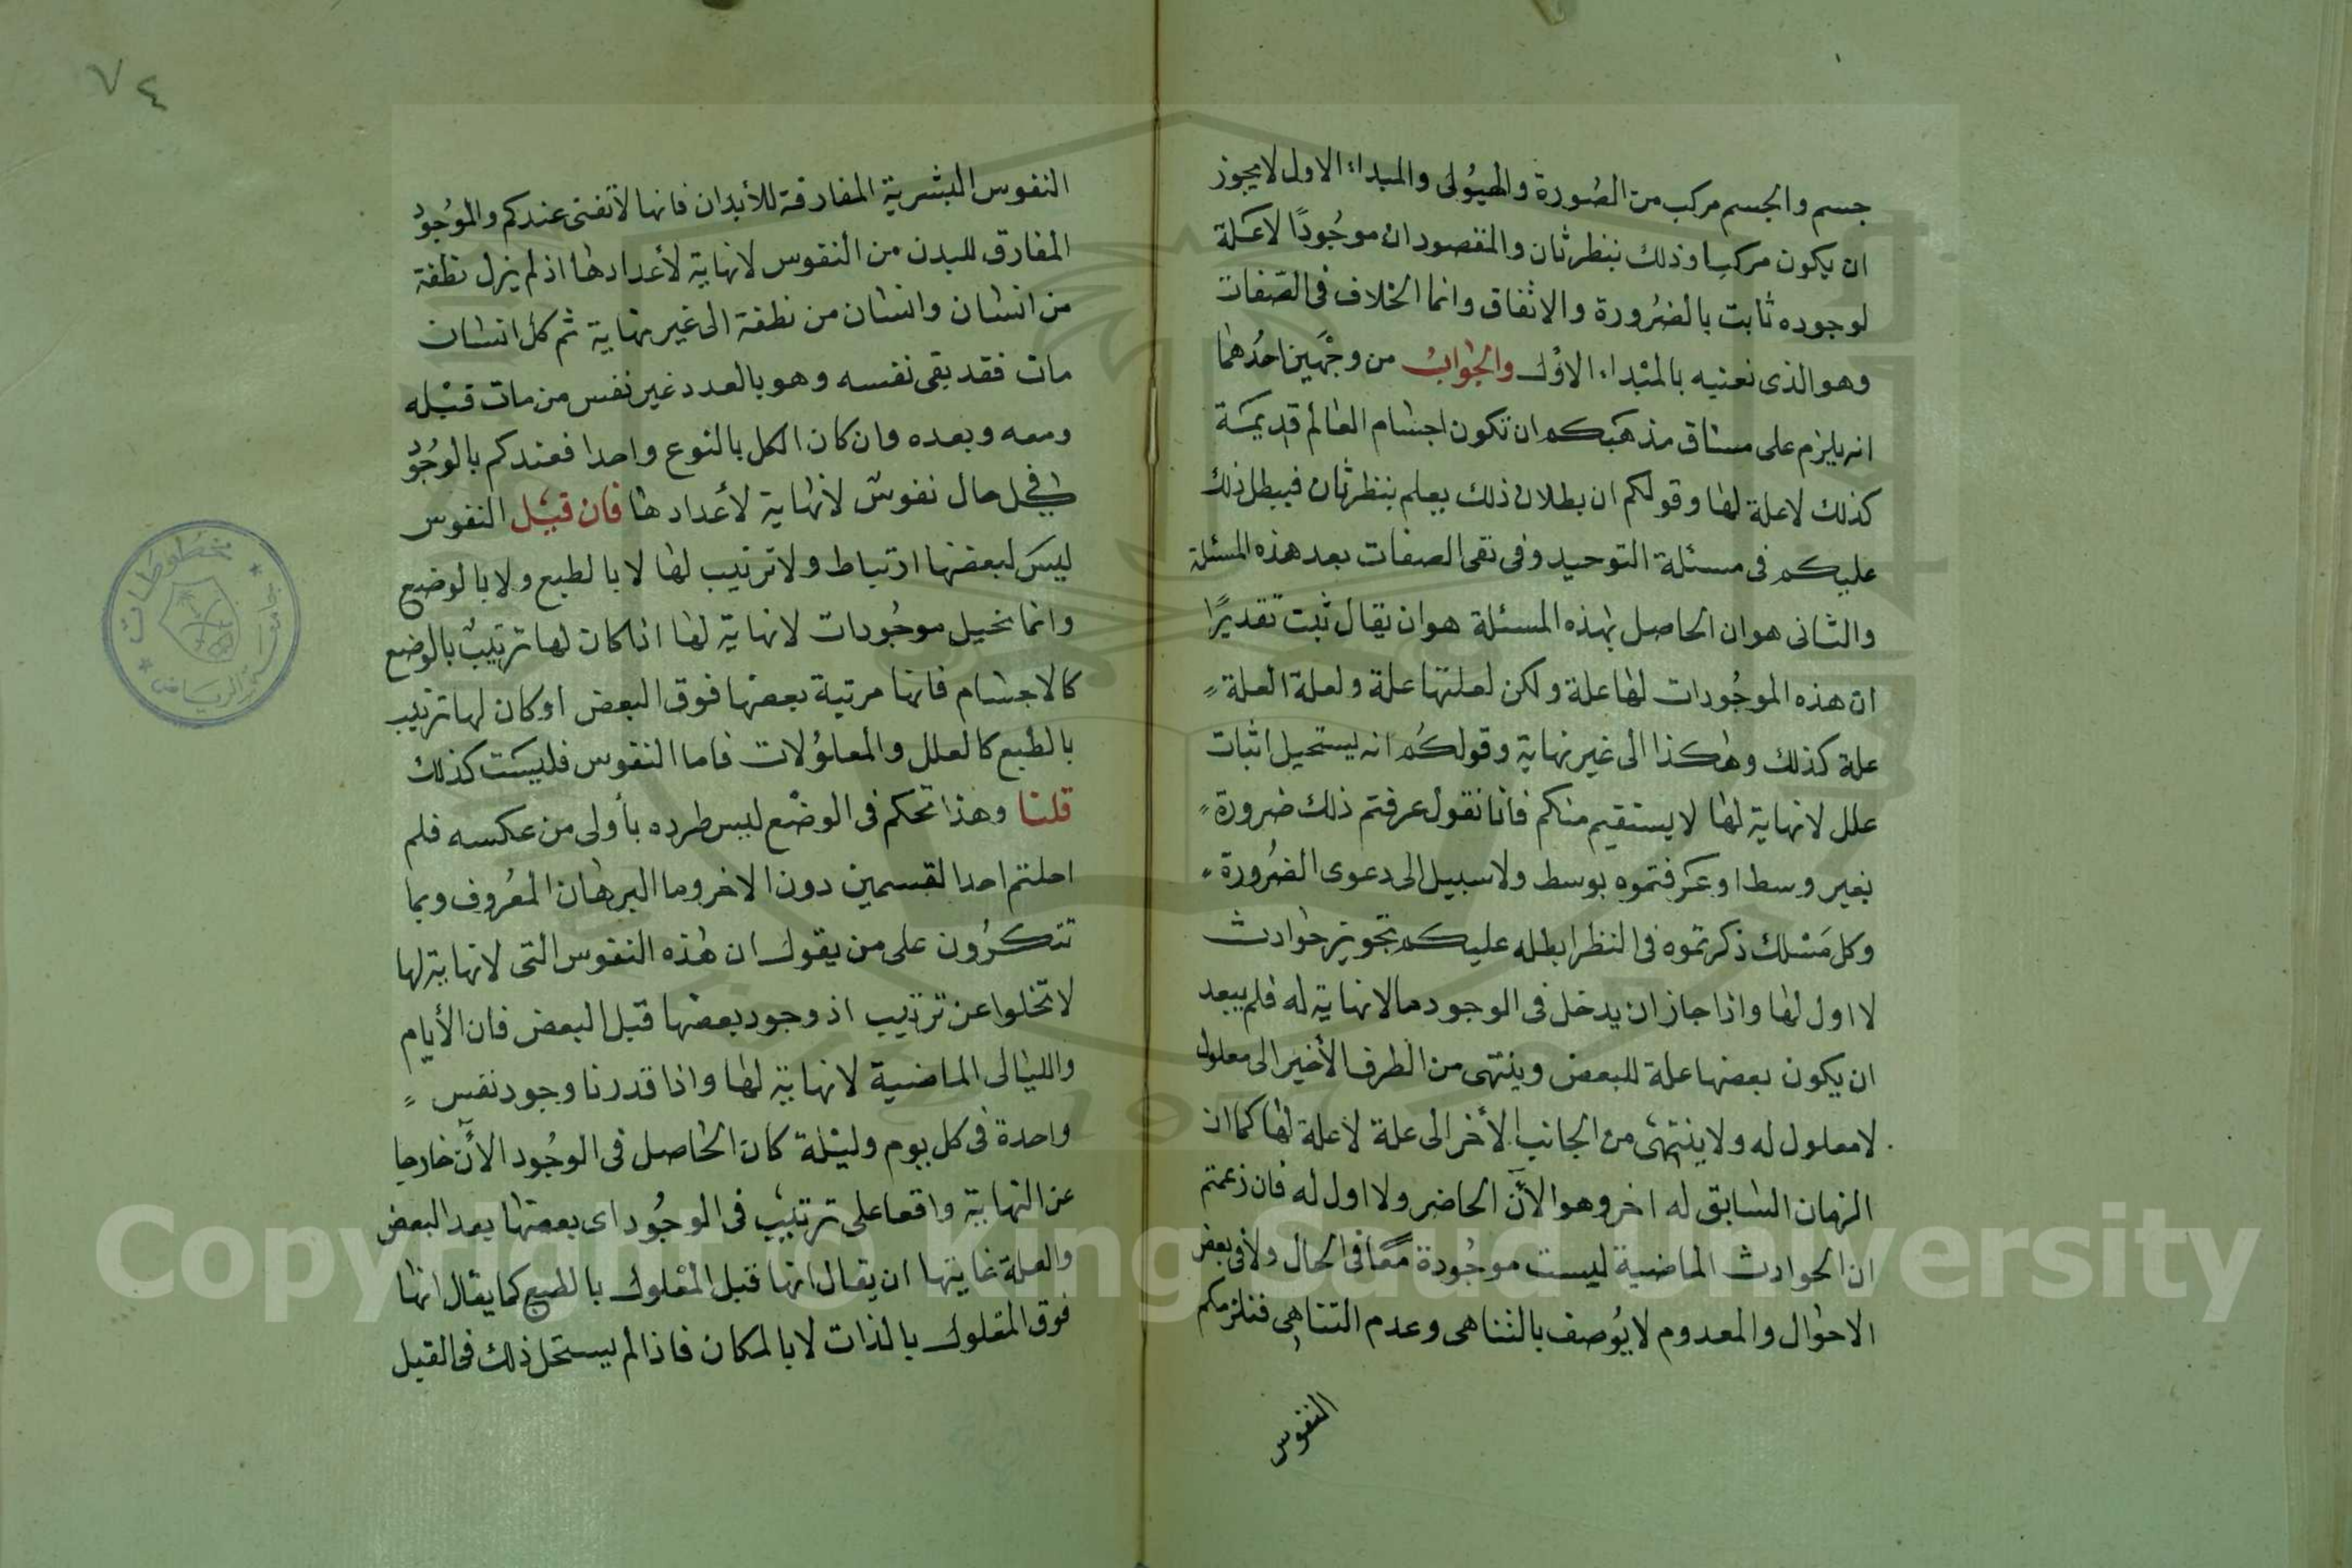 جسم والجسم مركب من الصُورة والهيُولى والمبداء الاول لا يجوز
ان يكون مركبا وذلك بنظر ثان والمقصود ان موجُودًا لا عَلة
لوجوده ثابت بالضُرورة والاتفاق وانما الخلاف فى الصّفات
وهو الذى نعنيه بالمبْداء الاوْل والجْوابُ من وجْهَين احدُهما
انه يلزم على مساق مذهَبكم ان تكون اجسام العالم قديمَة
كذلك لا علة لها وقولكم ان بطلان ذلك يعلم بنظر ثان فيبطل ذلك
عليكم فى مسئلة التوحيد وفى نفى الصفات بعد هذه المسئلة
والثانى هو ان الحاصل بهذه المسئلة هو ان يقال ثبت تقديرًا
ان هذه الموجُودات لها علة ولكن لعلتها علة ولعلة العلة
علة كذلك وهكذا الى غير نهاية وقولكُم انه يستحيل اثبات
علل لا نهاية لها لا يستقيم منكم فانا نقول عرفتم ذلك ضرورة
بغير وسط او عَرفتموه بوسط ولا سبيل الى دعوى الضُرورة
وكل مَسْلك ذكرتموه فى النظر ابطله عليكم تجويز حوادث
لا اول لها واذا جاز ان يدخل فى الوجود مالا نهاية له فلم يبعد
ان يكون بعضها علة للبعض وينتهى من الطرف الأخير الى معلول
لا معلول له ولا ينتهى من الجانب الأخر الى علة لا علة لها كما ان
الزمان السابق له اخر وهو الآن الحاضر ولا اول له فان زعمتم
ان الحوادث الماضية ليست موجُودة معًا فى الحال ولا فى بعض
الاحوال والمعدوم لا يُوصف بالتناهى وعدم التناهى فنلزمكم
النفوس
٧٤
النفوس البشرية المفارقة للأبدان فانها لا تفنى عندكم والموُجود
المفارق للبدن من النفوس لا نهاية لأعدادها اذ لم يزل نطفة
من انسان وانسان من نطفة الى غير نهاية ثم كل انسان
مات فقد بقى نفسه وهو بالعدد غير نفس من مات قبْله
ومعه وبعده وان كان الكل بالنوع واحدا فعندكم بالوُجُود
فى كل حال نفوس لا نهاية لأعدادها فان قيْل النفوس
ليسَ لبعضها ارتباط ولا ترتيب لها لا بالطبع ولا بالوضع
وانما نحيل موجُودات لا نهاية لها اذا كان لها ترتيبٌ بالوضع
كالاجسام فانها مرتبة بعضها فوق البعض او كان لها ترتيب
بالطبع كالعلل والمعلوُلات فاما النفوس فليسَت كذلك
قلنا وهذا تحكم فى الوضْع ليس طرده بأولى من عكسه فلم
احلتم احد القسمين دون الاخر وما البرهان المعُروف وبما
تنكرُون على من يقول ان هذه النفوس التى لا نهاية لها
لا تخلوا عن ترتيب اذ وجود بعضها قبل البعض فان الأيام
والليالى الماضية لا نهاية لها واذا قدرنا وجود نفس
واحدة فى كل يوم وليْلة كان الحاصل فى الوجُود الآن خارجا
عن النهاية واقعا على ترتيب فى الوجُود اى بعضها بعد البعض
والعلة غايتها ان يقال انها قبل المعْلول بالطبع كما يقال انها
فوق المعْلول بالذات لا بالمكان فاذا لم يستحل ذلك فى القبل
مخطوطات
جامعة الرياض
Copyright © King Saud University